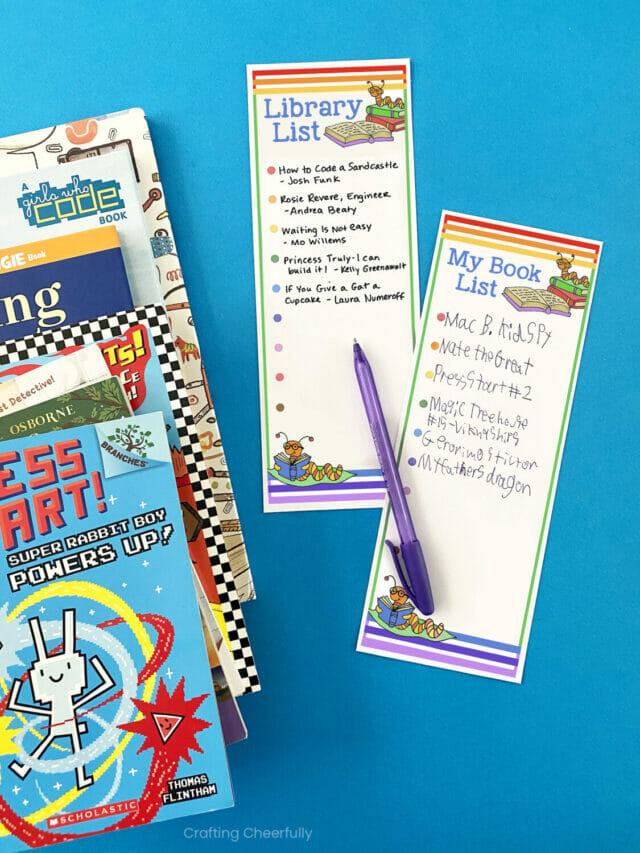 Library
List
How to Code a Sandcastle
- Josh Funk
Rosie Revere, Engineer
- Andrea Beaty
Waiting Is Not easy
- Mo Willems
Princess Truly - I can
build it! - Kelly Greenawalt
If You Give a Cat a
Cupcake - Laura Numeroff
My Book
List
Mac B. Kid Spy
Nate the Great
Press Start #2
Magic Treehouse
#15-
Geronimo Stilton
My fathers dragon
A
girls who
code
BOOK
GIE Book
ng
TS!
CE
st Detective!
OSBORNE
BRANCHES
ESS
ART!
SUPER RABBIT BOY
POWERS UP!
THOMAS
FLINTHAM
SCHOLASTIC
Crafting Cheerfully